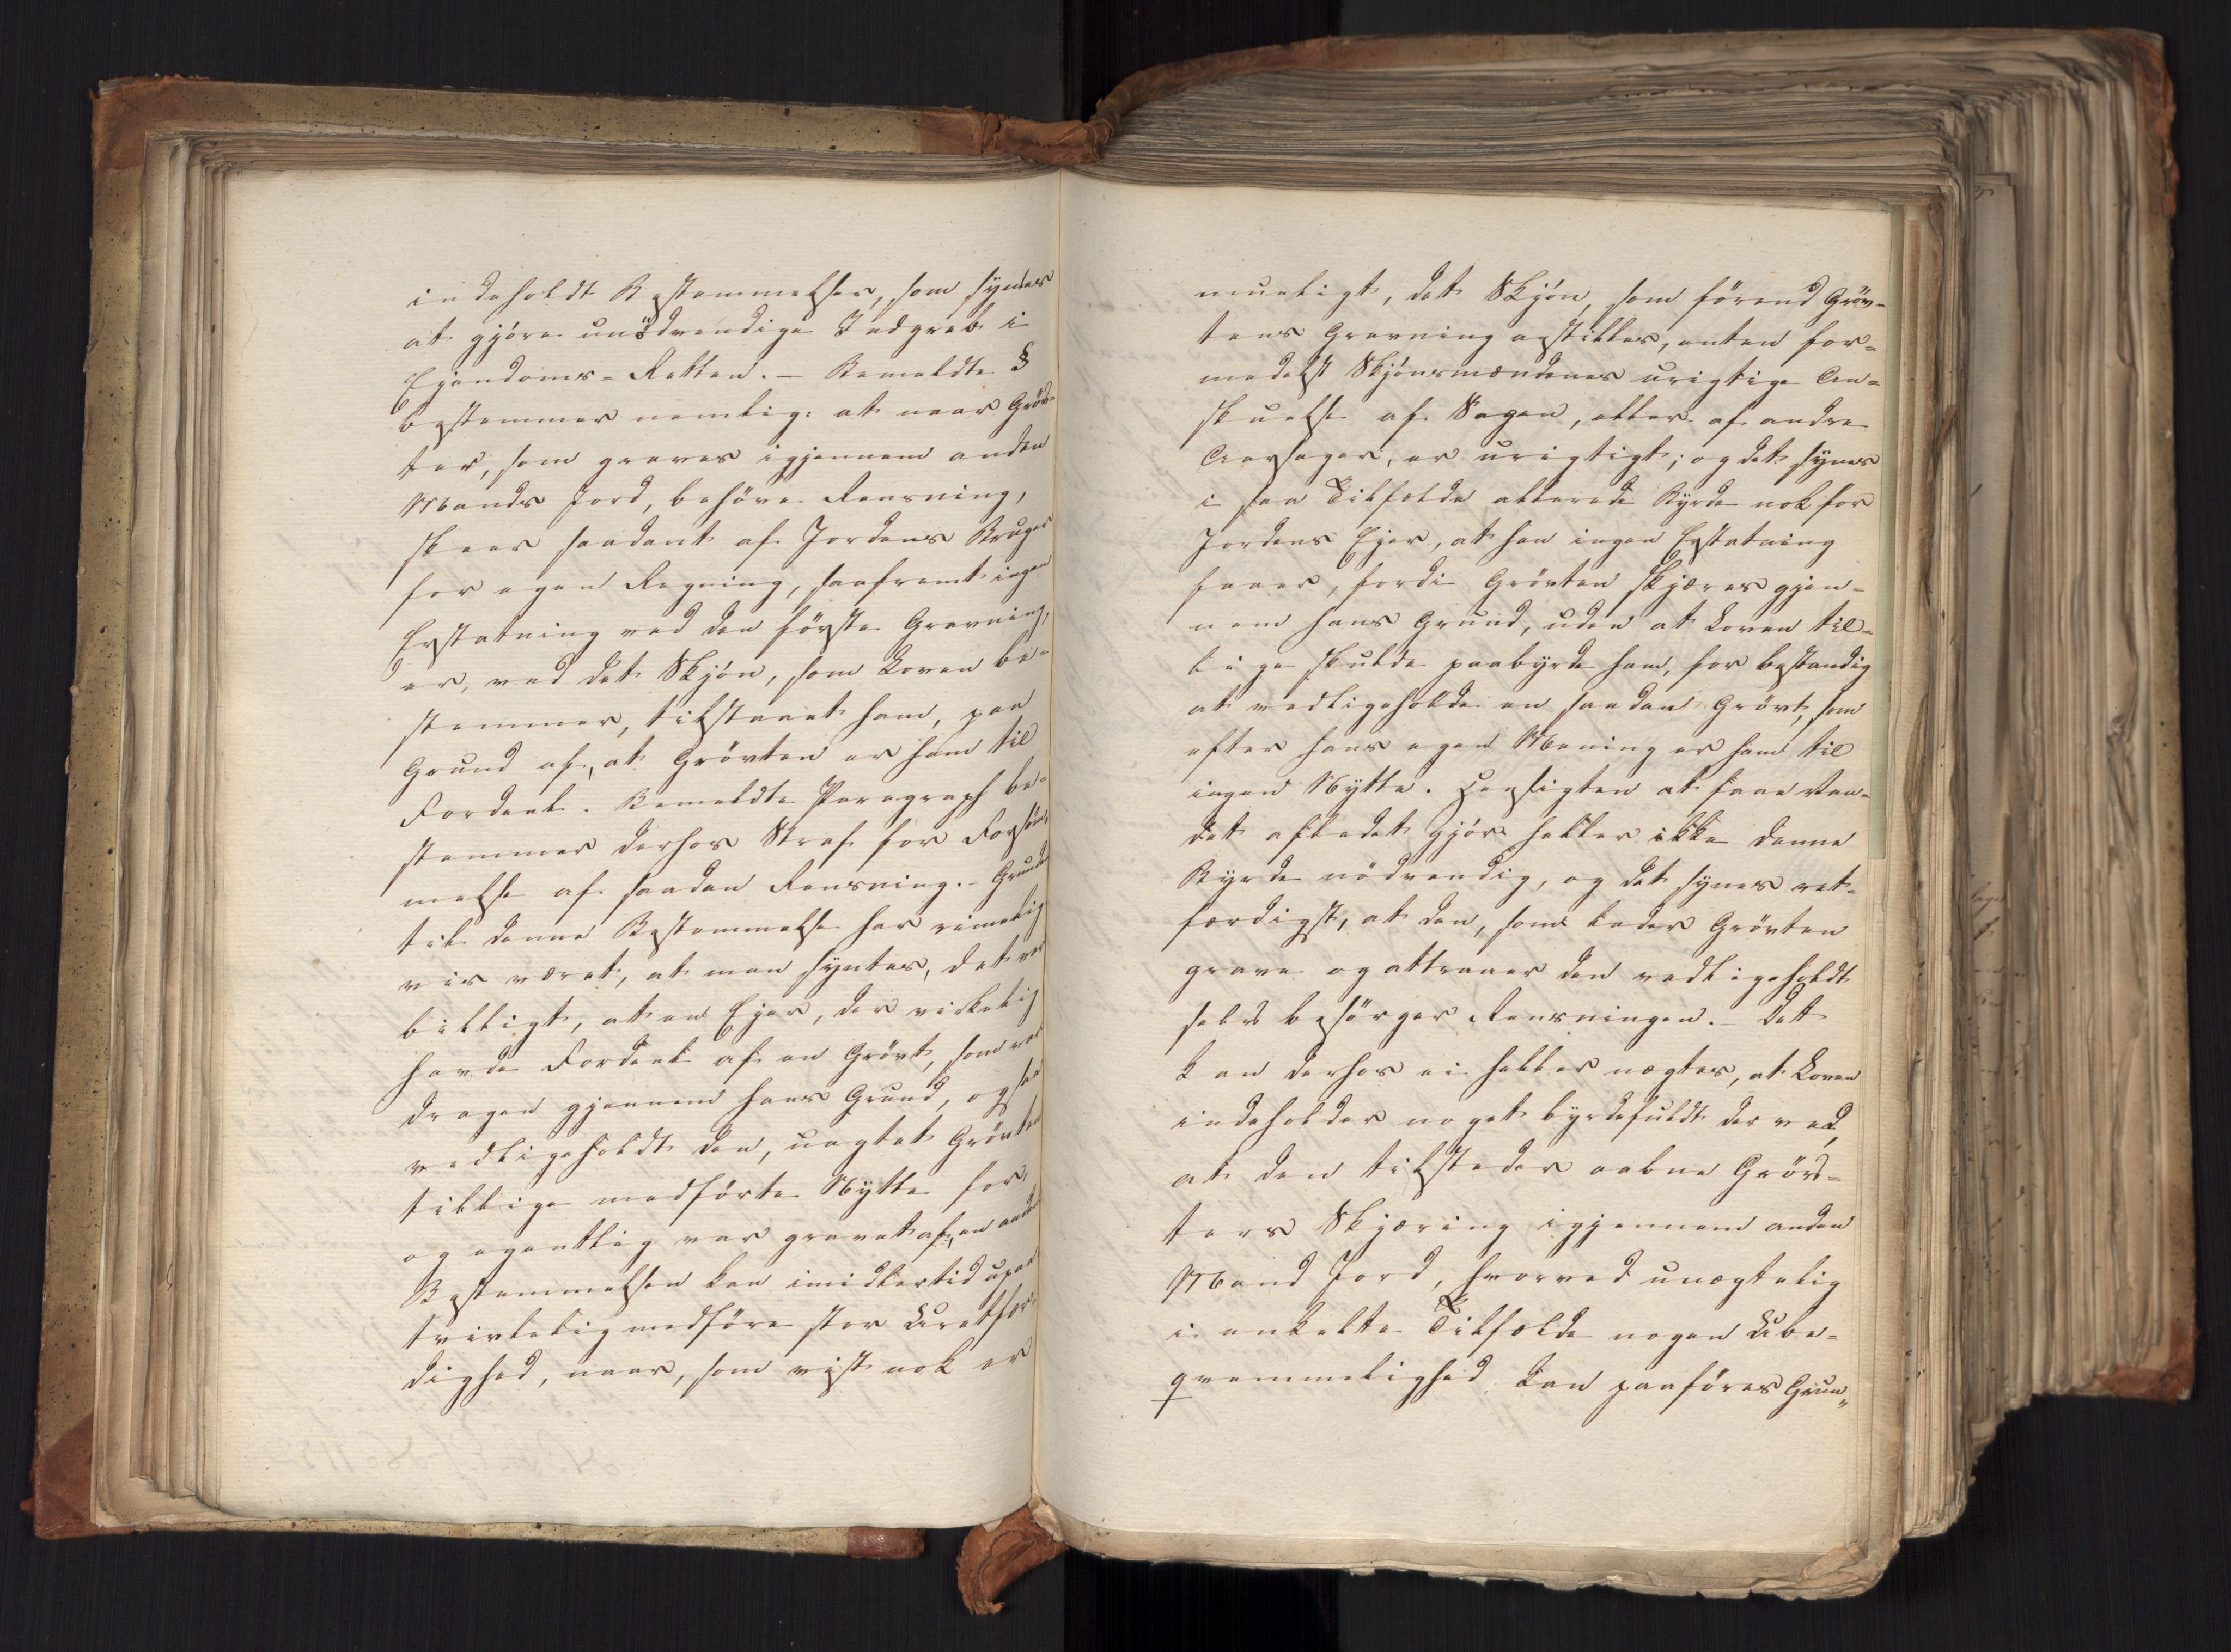 indeholdt Bestemmelser, som synes
at gjöre unödvendige Indgreb i
Ejendoms-Retten. – Bemeldte §
bestemmer nemlig: at naar Gröv-
ter, som graves igjennem anden
Mands Jord, behöve Rensning,
skeer saadant af Jordens Bruger
for egen Regning, saafremt ingen
Erstatning ved den förste Gravning,
er, ved det Skjön, som Loven be-
stemmer, tilstaaet ham, paa
Grund af, at Grövten er ham til
Fordeel. Bemeldte Paragraph be-
stemmer derhos Straf for Forsöm-
melse af saadan Rensning. – Grunden
til denne Bestemmelse har rimelig
vis været, at man syntes, det var
billigt, at en Ejer, der virkelig
havde Fordeel af en Grövt, som var
dragen gjennem hans Grund, ogsaa
vedligeholdt den, uagtet Grövten
tillige medförte Nytte for,
og egentlig var gravet af, en anden
Bestemmelsen kan imidlertid upaa
tvivlelig medföre stor Uretfær-
dighed, naar, som vist nok er
mueligt, det Skjön, som förend Gröv-
tens Gravning afstilles, enten for-
medelst Skjönsmændenes urigtige An-
skuelse af Sagen, eller af andre
Aarsager, er urigtigt; og det synes
i saa Tilfælde allerede Byrde nok for
Jordens Ejer, at han ingen Erstatning
faaer, fordi Grövten skjæres gjen-
nem hans Grund, uden at Loven til-
lige skulde paabyrde ham, for bestandig
at vedligeholde en saadan Grövt, som
efter hans egen Mening er ham til
ingen Nytte. Hensigten at faae Van-
det afledet gjör heller ikke denne
Byrde nödvendig, og det synes ret-
færdigst, at den, som lader Grövten
grave og attraaer den vedligeholdt
selv besörger Rensningen. – Det
kan derhos ei heller nægtes, at Loven
indeholder noget byrdefuldt derved,
at den tilsteder aabne Gröv-
ters Skjæring igjennem anden
Mand Jord, hvorved unægtelig
i enkelte Tilfælde nogen Ube-
qvemmelighed kan paaföres Grun-